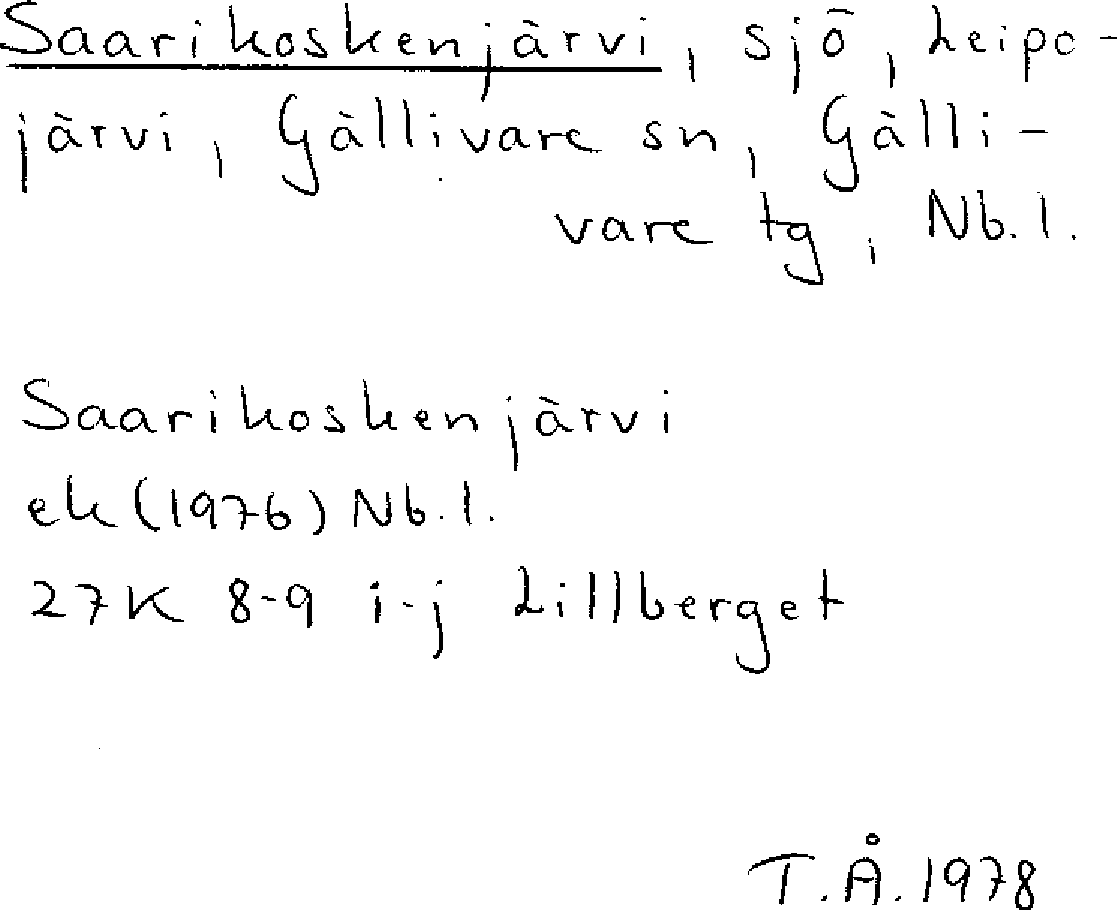 Saarikoskenjärvi, sjö, Leipo-
järvi, Gällivare sn, Gälli-
vare tg, Nb.l.
Saarikoskenjärvi
ek (1976) Nb.l.
27K 8-9 i-j Lillberget
T.Å. 1978